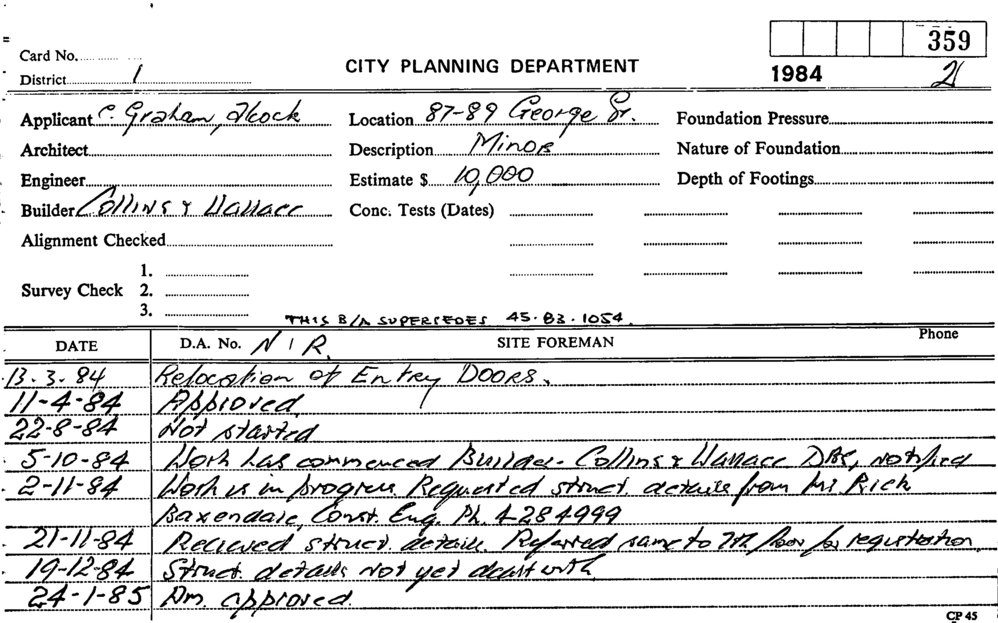 359
Card No.
CITY PLANNING DEPARTMENT
1984 21
District 1
Applicant C. Graham, Alcock Location 87-89 George St. Foundation Pressure
Architect Description Minor Nature of Foundation
Engineer Estimate $ 10,000 Depth of Footings
Builder Collins & Wallace Conc. Tests (Dates)
Alignment Checked
1.
Survey Check 2.
3.
THIS B/A SUPERSEDES 45.83.1054.
DATE D.A. No. N I R. SITE FOREMAN Phone
13.3.84 Relocation of Entry Doors.
11-4-84 Approved
22-8-84 Not started
5-10-84 Work has commenced Builder- Collins & Wallace DBS, notified
2-11-84 Work is in progress Requested struct. details from Mr Rich
Baxendale, Const. Eng. Ph. 4284999
21-11-84 Recieved struct. details. Referred same to 7th floor for registration.
19-12-84 Struct. details not yet dealt with
24-1-85 Am. approved.
CP 45